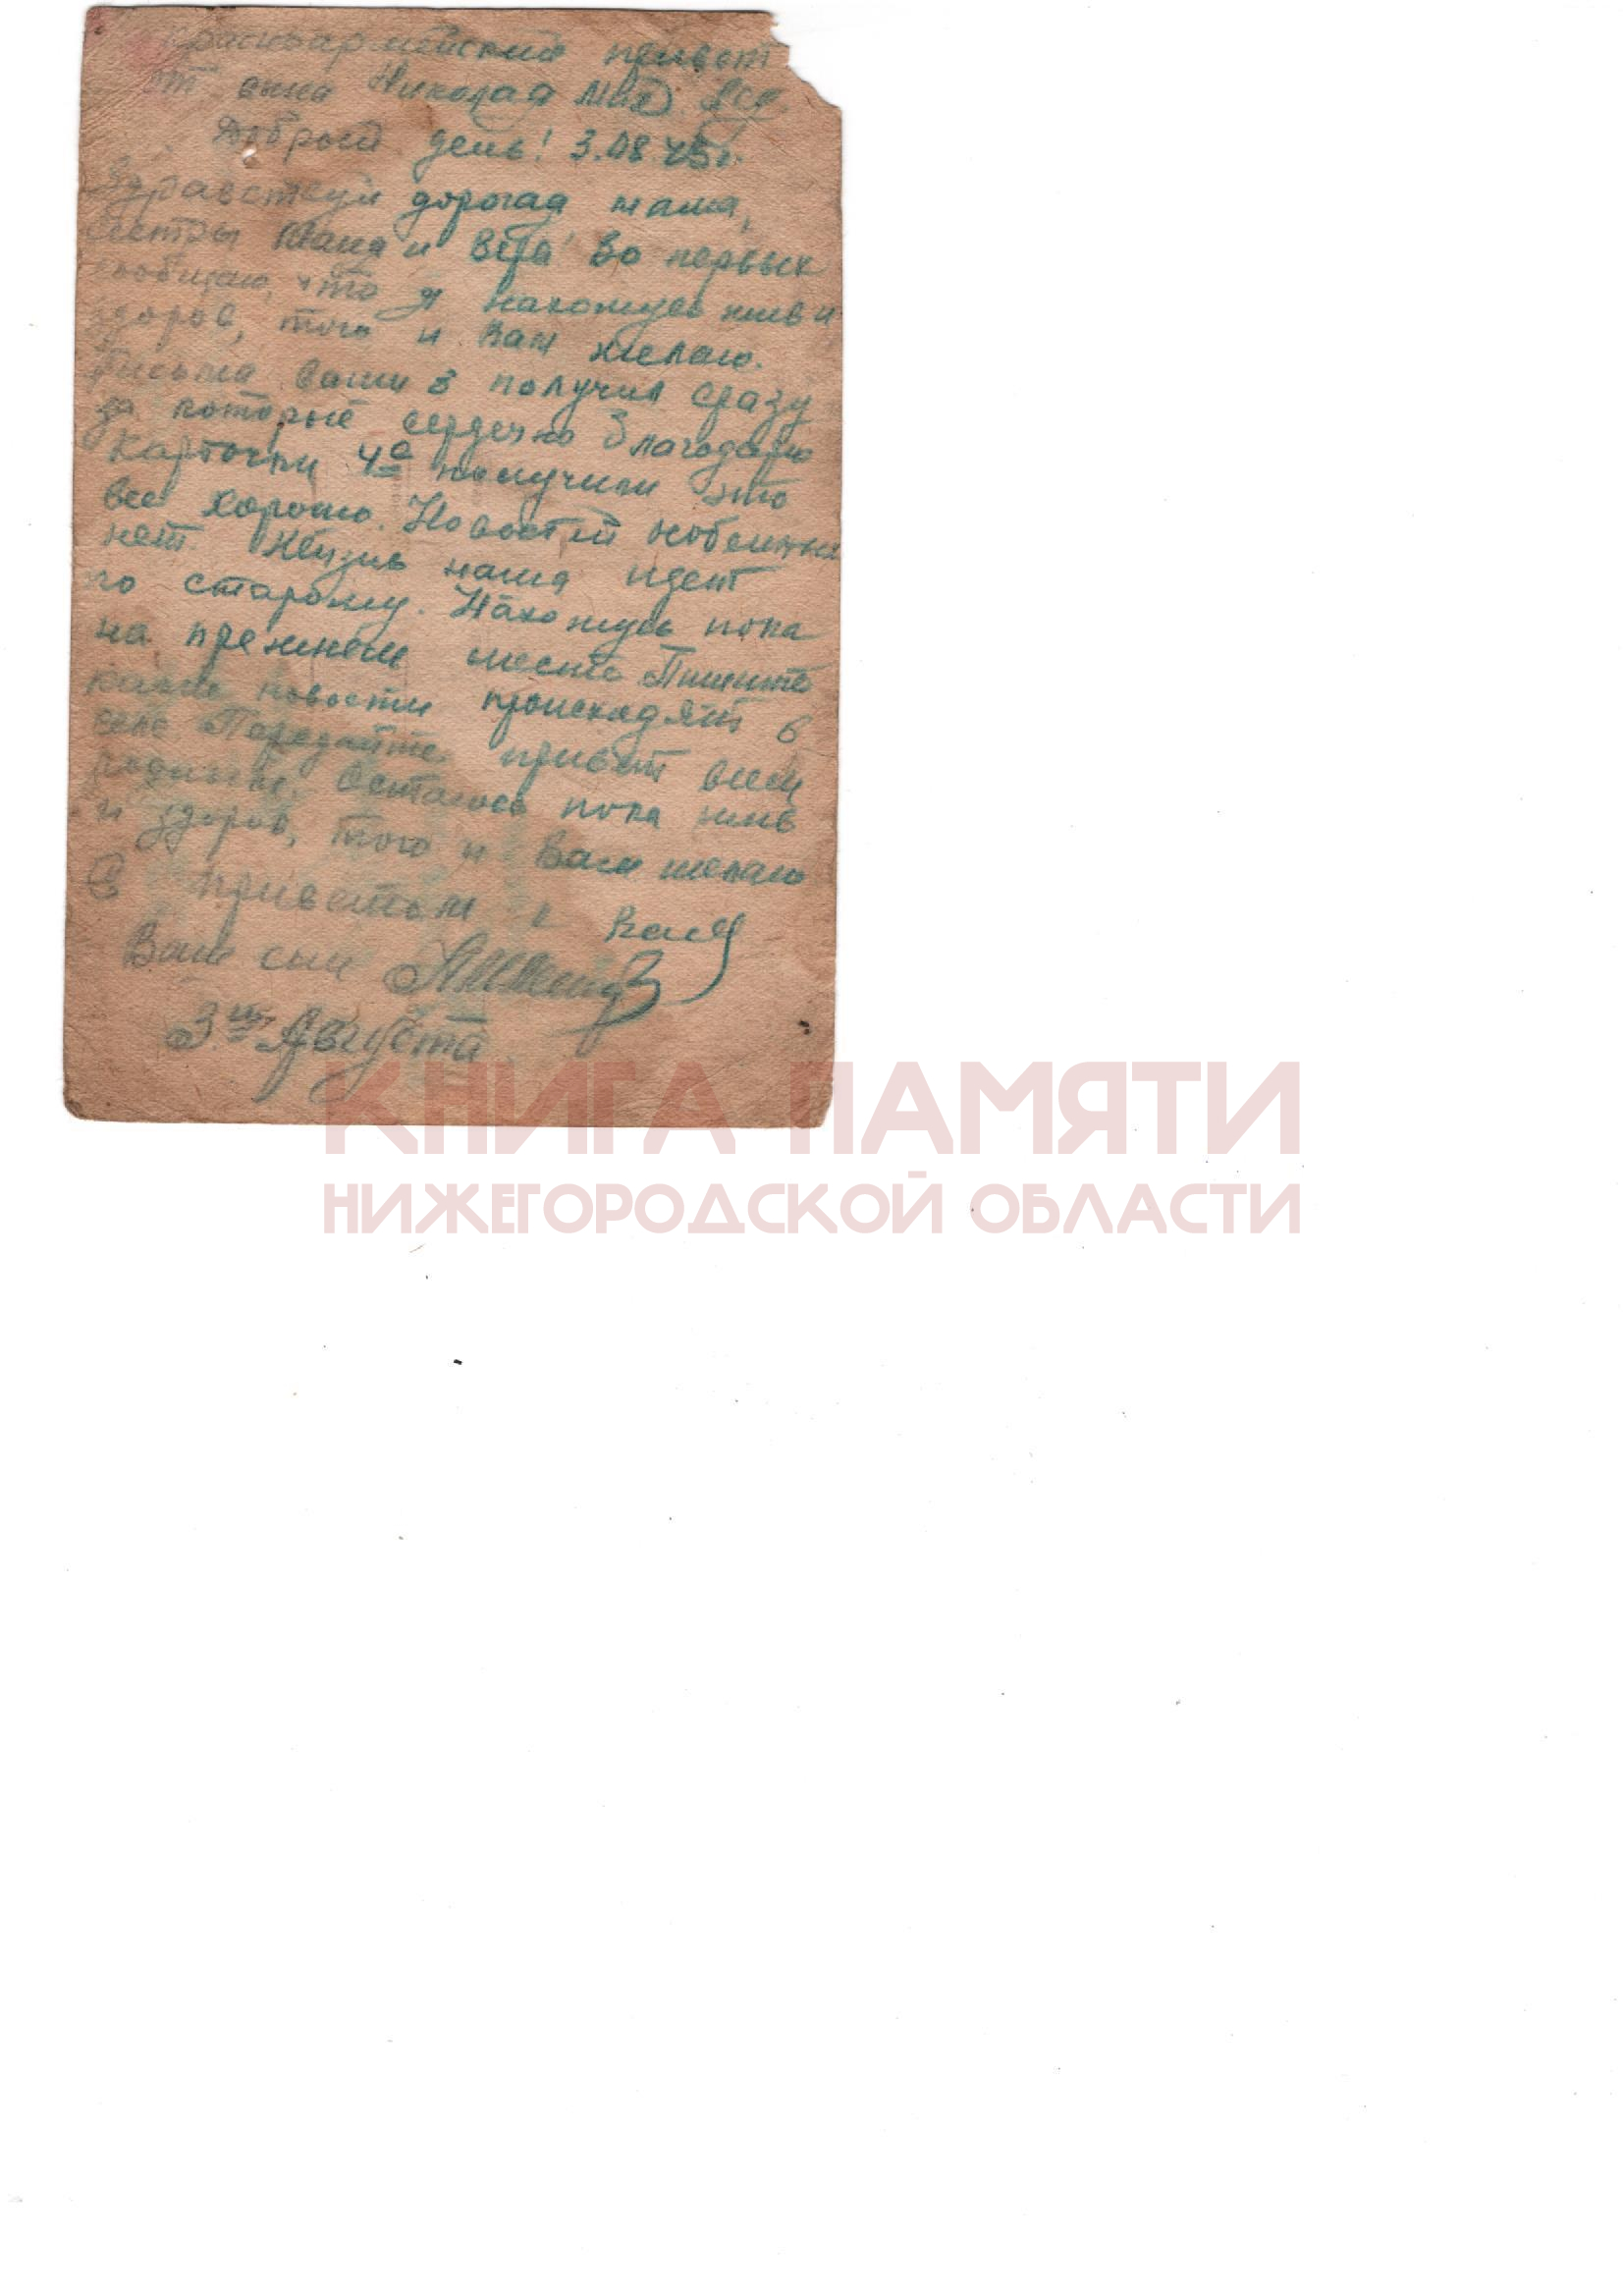 Красноармейский привет
от сына Николая Мих.
Добрый день! 3.08.45г.
Здравствуй дорогая мама,
сестры Маня и Вера! Во первых
сообщаю, что я нахожусь жив и
здоров, того и Вам желаю.
Письма ваши 3 получил сразу
за которые сердечно благодарю
Карточки 4е получили это
все хорошо. Новостей особенных
нет. Жизнь наша идет
по старому. Нахожусь пока
на прежнем месте. Пишите
какие новости происходят в
селе Передайте привет всем
родным. Остаюсь пока жив
и здоров, того и Вам желаю
С приветом к Вам
Ваш сын
3го Августа
КНИГА ПАМЯТИ
НИЖЕГОРОДСКОЙ ОБЛАСТИ